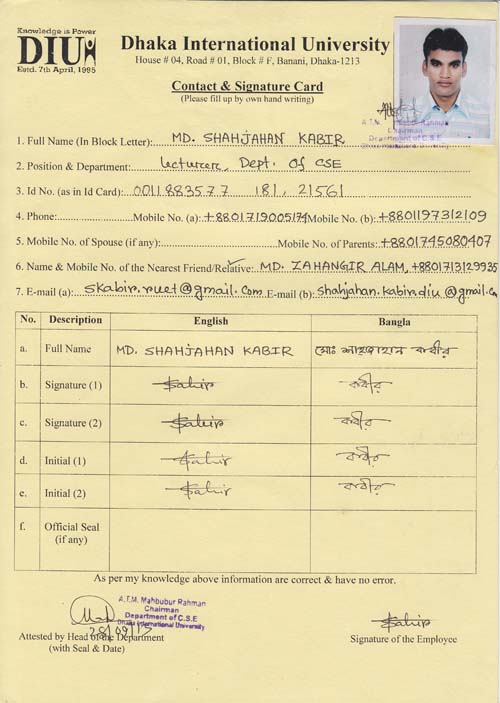 Knowledge is Power
DIU
Estd. 7th April, 1995
Dhaka International University
House # 04, Road # 01, Block # F, Banani, Dhaka-1213
Contact & Signature Card
(Please fill up by own hand writing)
A.T.M. Mahbubur Rahman
Chairman
Department of C.S.E
1. Full Name (In Block Letter): MD. SHAHJAHAN KABIR
2. Position & Department: Lecturer, Dept. Of CSE
3. Id No. (as in Id Card): 0011883577 181, 21561
4. Phone: Mobile No. (a): +8801719005174 Mobile No. (b): +8801197312109
5. Mobile No. of Spouse (if any): Mobile No. of Parents: +8801745080407
6. Name & Mobile No. of the Nearest Friend/Relative: MD. ZAHANGIR ALAM, +8801713129935
7. E-mail (a): skabir.ruet@gmail.com E-mail (b): shahjahan.kabir.diu@gmail.Co
No. Description English Bangla
a. Full Name MD. SHAHJAHAN KABIR মোঃ শাহজাহান কবীর
b. Signature (1) Kabir কবীর
c. Signature (2) Kabir কবীর
d. Initial (1) Kabir কবীর
e. Initial (2) Kabir কবীর
f. Official Seal
(if any)
As per my knowledge above information are correct & have no error.
A.T.M. Mahbubur Rahman
Chairman
Department of C.S.E
Dhaka International University
28/09/13
Kabir
Attested by Head of the Department
(with Seal & Date)
Signature of the Employee